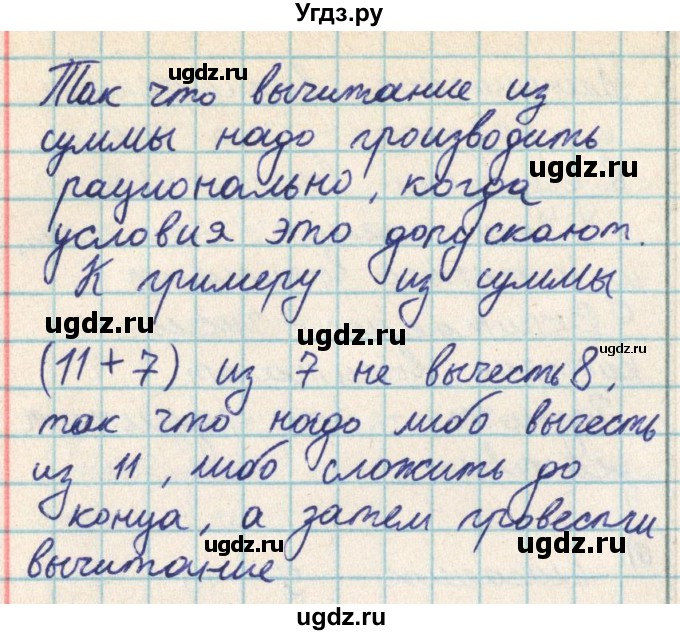 Угдз.ру
Так что вычитание из
суммы надо производить
рационально, когда
условия это допускают.
К примеру из суммы
(11+7) из 7 не вычесть 8,
так что надо либо вычесть
из 11, либо сложить до
конца, а затем провести
вычитание
ugdz.ru
ugdz.ru
ugdz.ru
ugdz.ru
ugdz.ru
ugdz.ru
ugdz.ru
ugdz.ru
ugdz.ru
ugdz.ru
ugdz.ru
ugdz.ru